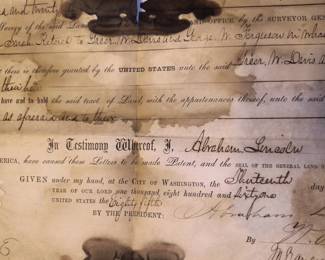 and Twenty
Survey of the said Land OFFICE, by the SURVEYOR GEN
Such Patent to Greer W Davis and George W. Ferguson in whose
there is therefore granted by the UNITED STATES unto the said Greer W Davis a
their he
have and to hold the said tract of Land, with the appurtenances thereof, unto the said
as aforesaid and to their
In Testimony Whereof, I, Abraham Lincoln
ERICA, have caused these Letters to be made Patent, and the SEAL OF THE GENERAL LAND O
GIVEN under my hand, at the CITY OF WASHINGTON, the Thirteenth day
YEAR OF OUR LORD one thousand, eight hundred and sixty one
UNITED STATES the Eighty fifth
BY THE PRESIDENT: Abraham L
By